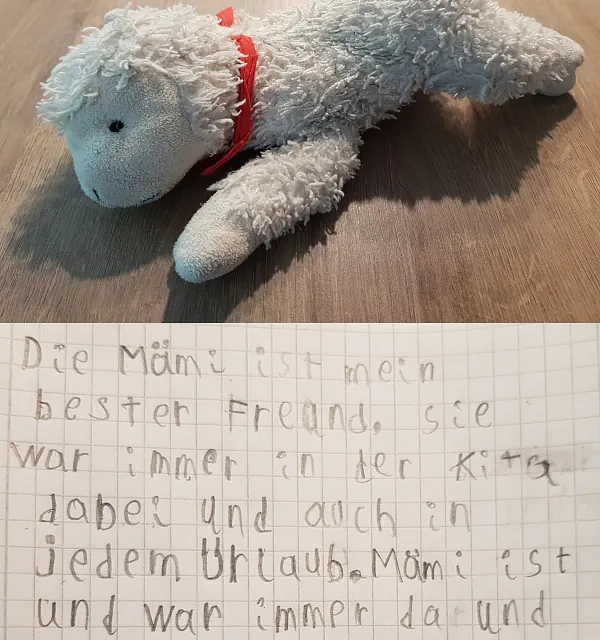 Die Mämi ist mein
bester Freund. sie
war immer in der Kita
dabei und auch in
jedem Urlaub. Mämi ist
und war immer da und